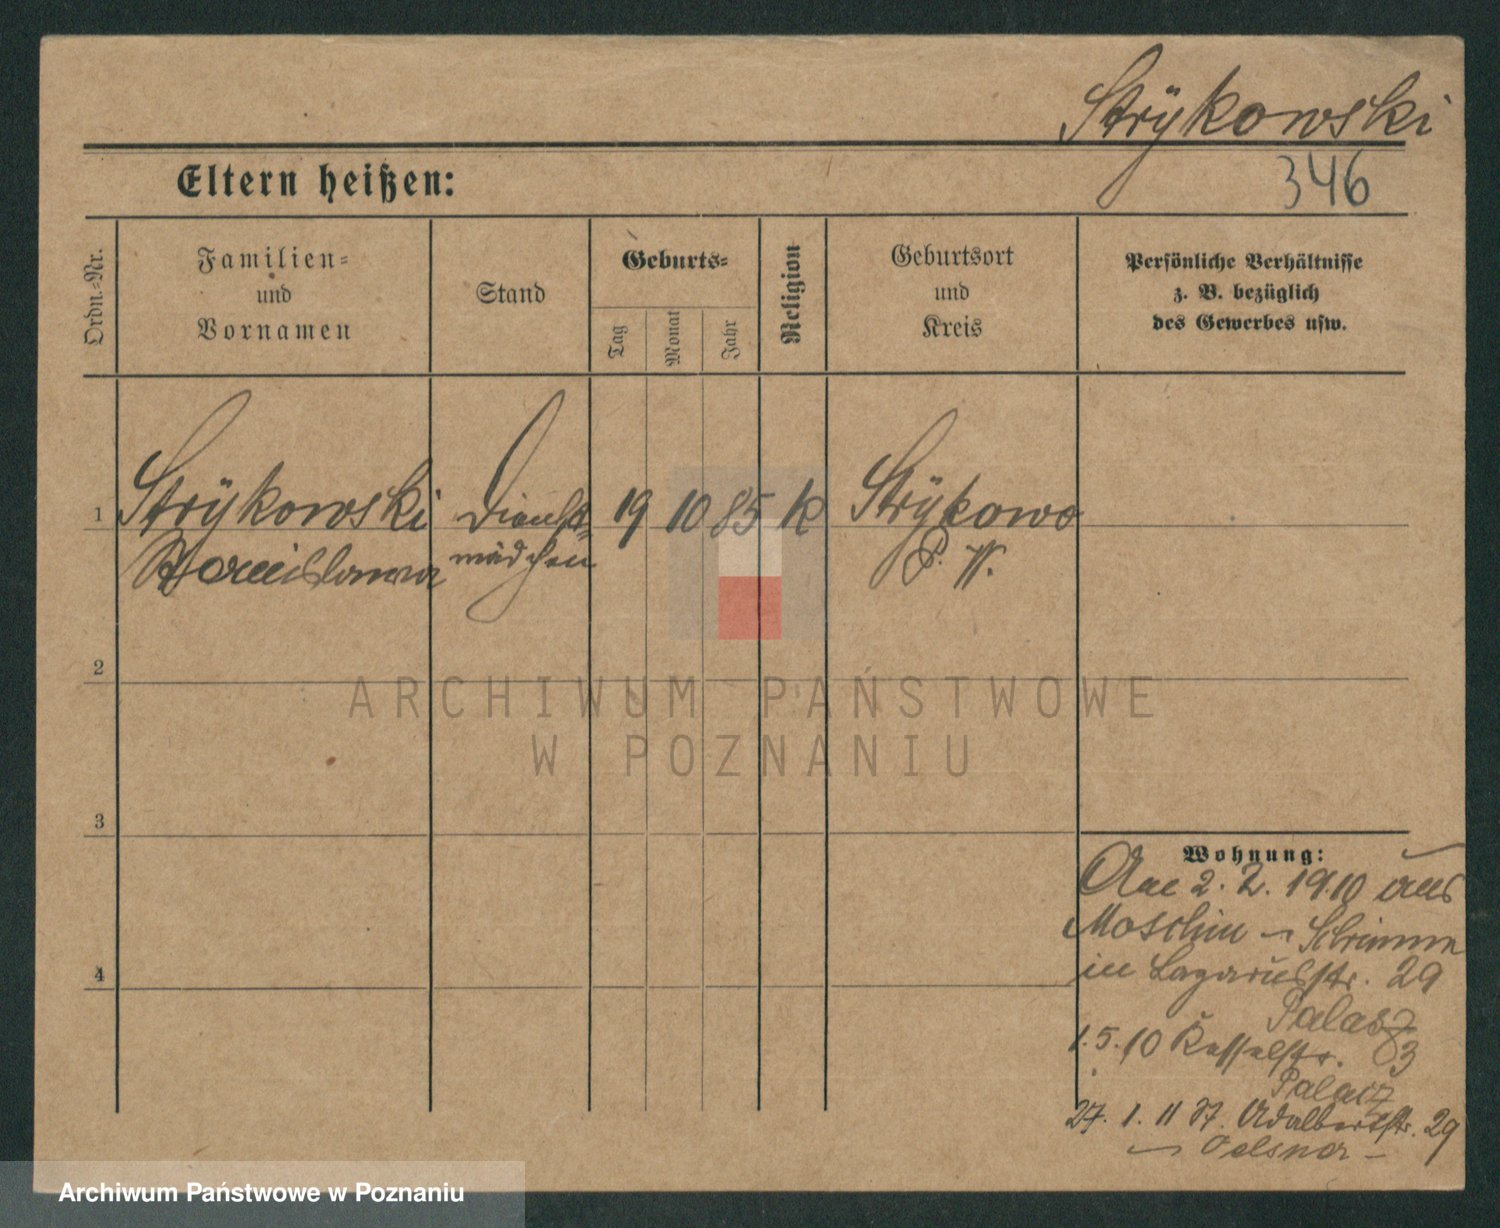 Strÿkowski
346
Eltern heißen:
Ordn.-Nr.
Familien-
und
Vornamen
Stand
Geburts-
Tag
Monat
Jahr
Religion
Geburtsort
und
Kreis
Persönliche Verhältnisse
z. B. bezüglich
des Gewerbes usw.
1 Strÿkowski Dienst- 19 10 85 k Strÿkowo
Stanislawa mädchen P. W.
2
ARCHIWUM PAŃSTWOWE
W POZNANIU
3
Wohnung:
2. 2. 1910 aus
Moschin - Schrimm
in Lazarusstr. 29
Palacz
1. 5. 10 Kesselstr. 3
Palacz
27. 1. 11 Adalbertstr. 29
Oelsner
4
Archiwum Państwowe w Poznaniu